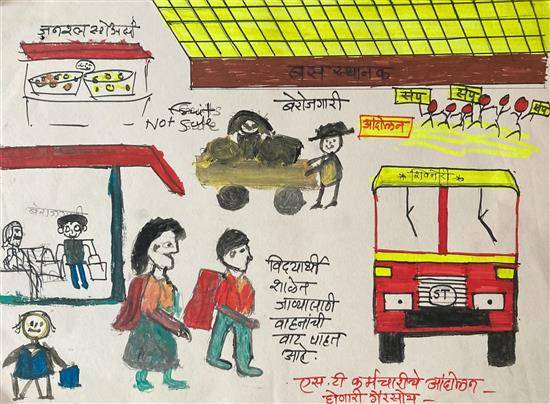 जनरल स्टोअर्स
बस स्थानक
संप संप संप
आंदोलन
बेरोजगारी
Fruits
Not Sale
* शिवनेरी *
बेरोजगारी
विद्यार्थी
शाळेत
जाण्यासाठी
वाहनांची
वाट पाहत
आहे.
ST
- एस.टी कर्मचारीचे आंदोलन -
होणारी गैरसोय -